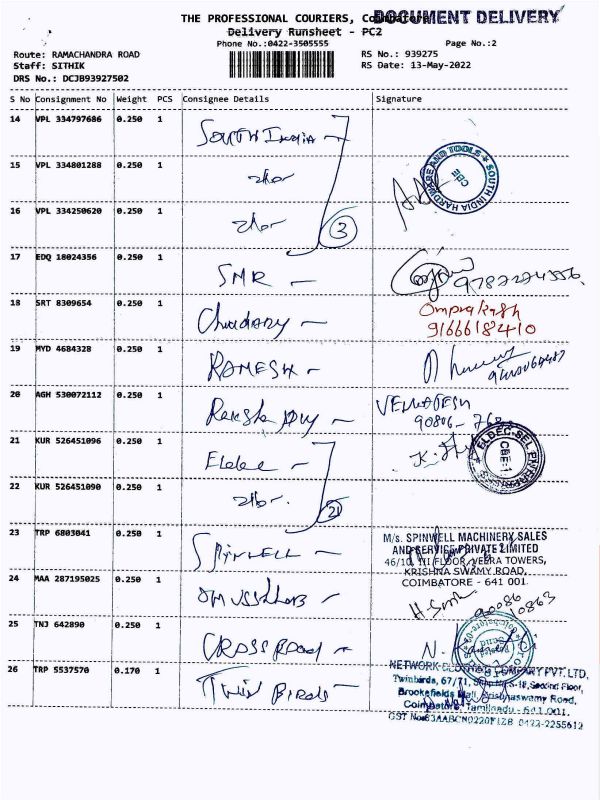 THE PROFESSIONAL COURIERS, Coimbatore
DOCUMENT DELIVERY
Delivery Runsheet - PC2
Phone No.:0422-3505555
Page No.:2
Route: RAMACHANDRA ROAD
RS No.: 939275
Staff: SITHIK
RS Date: 13-May-2022
DRS No.: DCJB93927502
S No Consignment No Weight PCS Consignee Details Signature
14 VPL 334797686 0.250 1 SOUTH INDIA
15 VPL 334801288 0.250 1
SOUTH INDIA HARDWARE AND TOOLS CBE
16 VPL 334250620 0.250 1
3
17 EDQ 18024356 0.250 1 SMR
18 SRT 8309654 0.250 1 Omprakash
9166618410
19 MYD 4684328 0.250 1 RAMESH
20 AGH 530072112 0.250 1
21 KUR 526451096 0.250 1
22 KUR 526451090 0.250 1
23 TRP 6803041 0.250 1 SPINWELL
M/s. SPINWELL MACHINERY SALES
AND SERVICE PRIVATE LIMITED
46/10, III FLOOR, VEERA TOWERS,
KRISHNA SWAMY ROAD,
COIMBATORE - 641 001
24 MAA 287195025 0.250 1
25 TNJ 642890 0.250 1 CROSSROAD
26 TRP 5537570 0.170 1 TWIN BIRDS
NETWORK CLOTHING COMPANY PVT. LTD,
Twinbirds, 67/71, Second Floor,
Brookefields Mall, Krishnaswamy Road,
Coimbatore, Tamilnadu - 641 001.